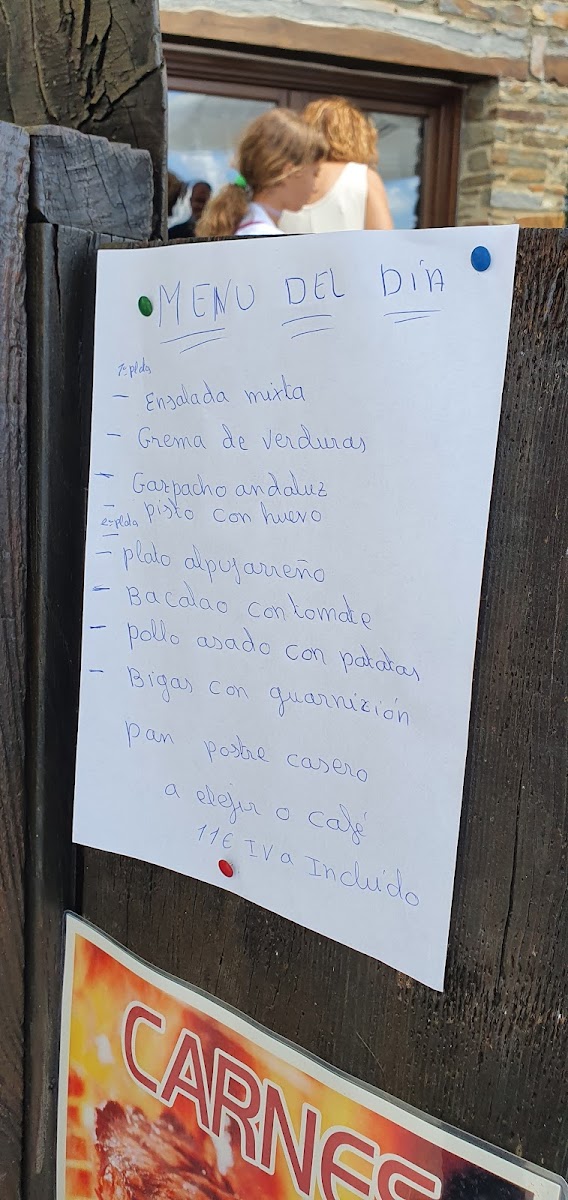 MENU DEL DÍA
1º plda
- Ensalada mixta
- Crema de verduras
- Gazpacho andaluz
- pisto con huevo
2º plda
- plato alpujarreño
- Bacalao con tomate
- pollo asado con patatas
- Bigas con guarnizión
pan postre casero
a elejir o café
11€ IVa Incluído
CARNES